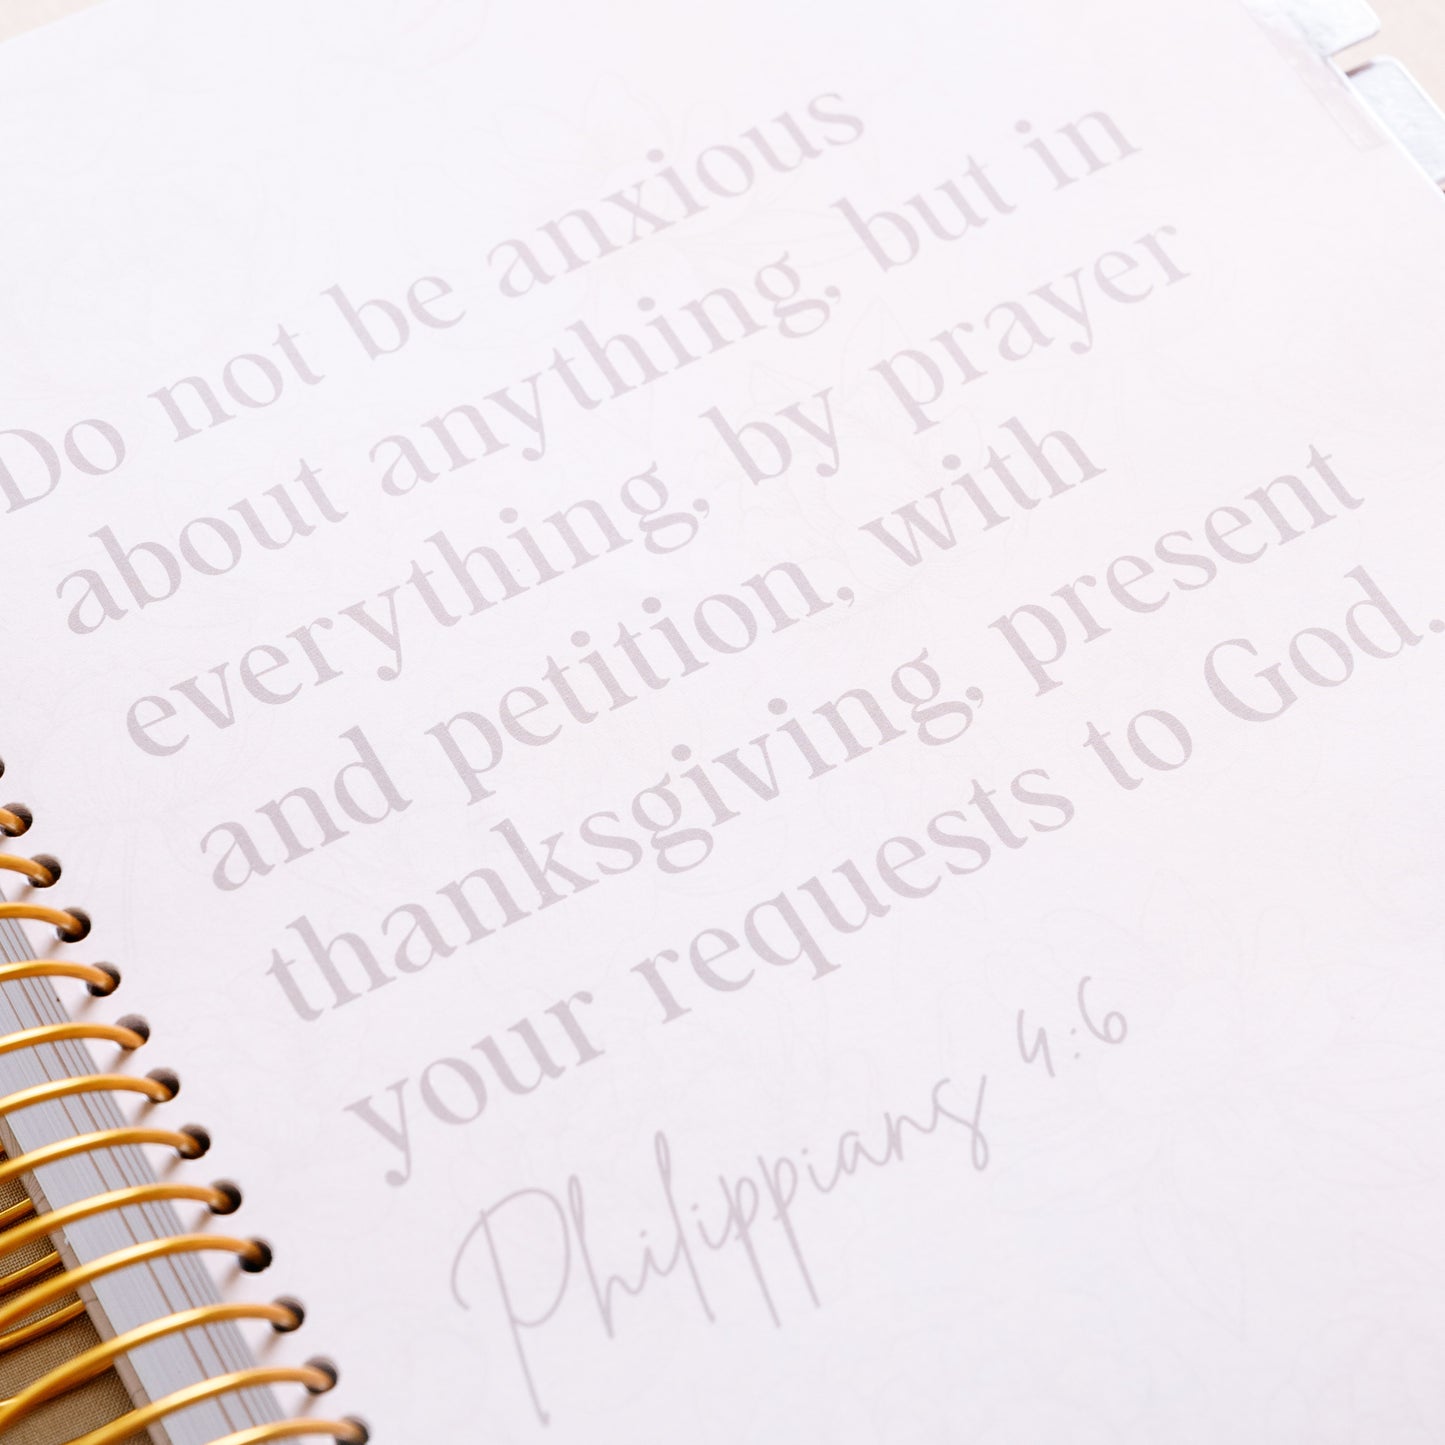 Do not be anxious
about anything, but in
everything, by prayer
and petition, with
thanksgiving, present
your requests to God.
Philippians 4:6